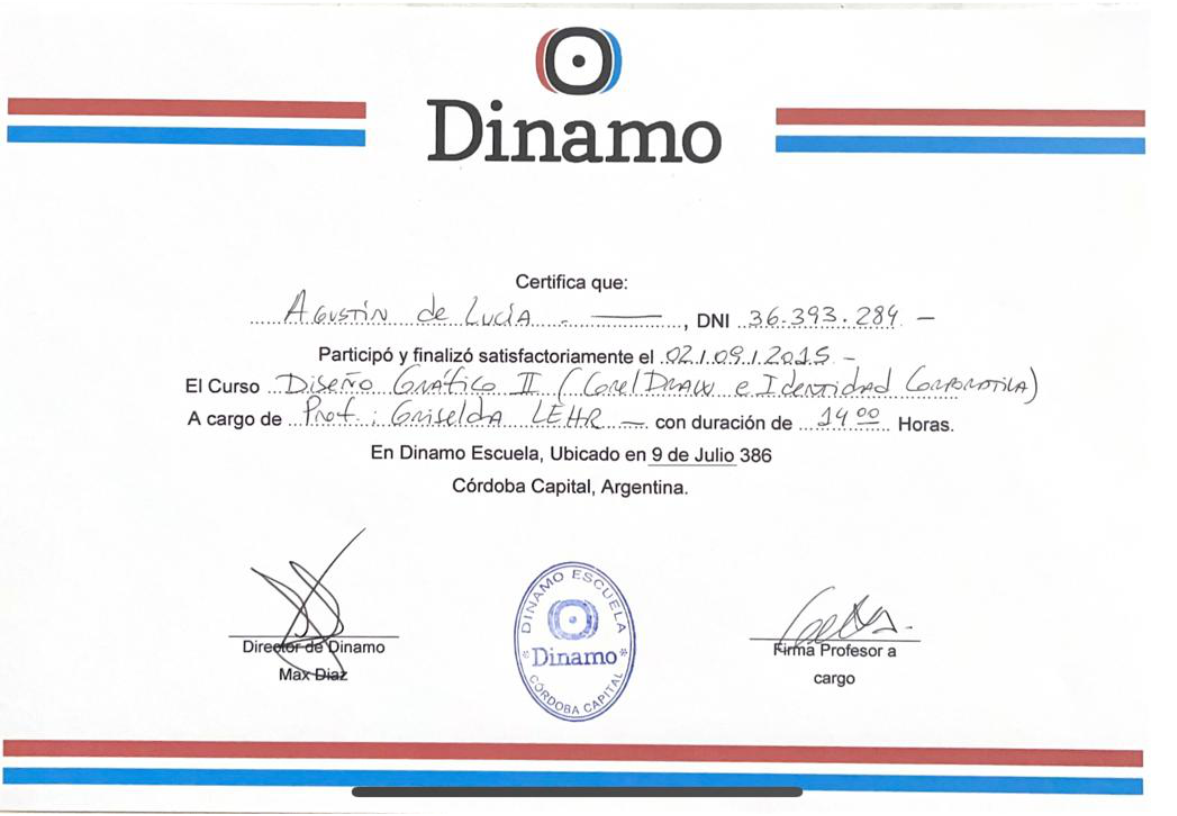 Dinamo
Certifica que:
Agustín de Lucía . —, DNI 36.393.284 —
Participó y finalizó satisfactoriamente el 02/09/2015 —
El Curso Diseño Gráfico II (Corel Draw e Identidad Corporativa)
A cargo de Prof.: Griselda LEHR — con duración de 14 00 Horas.
En Dinamo Escuela, Ubicado en 9 de Julio 386
Córdoba Capital, Argentina.
DINAMO ESCUELA
* Dinamo *
CÓRDOBA CAPITAL
Director de Dinamo
Max Diaz
Firma Profesor a
cargo